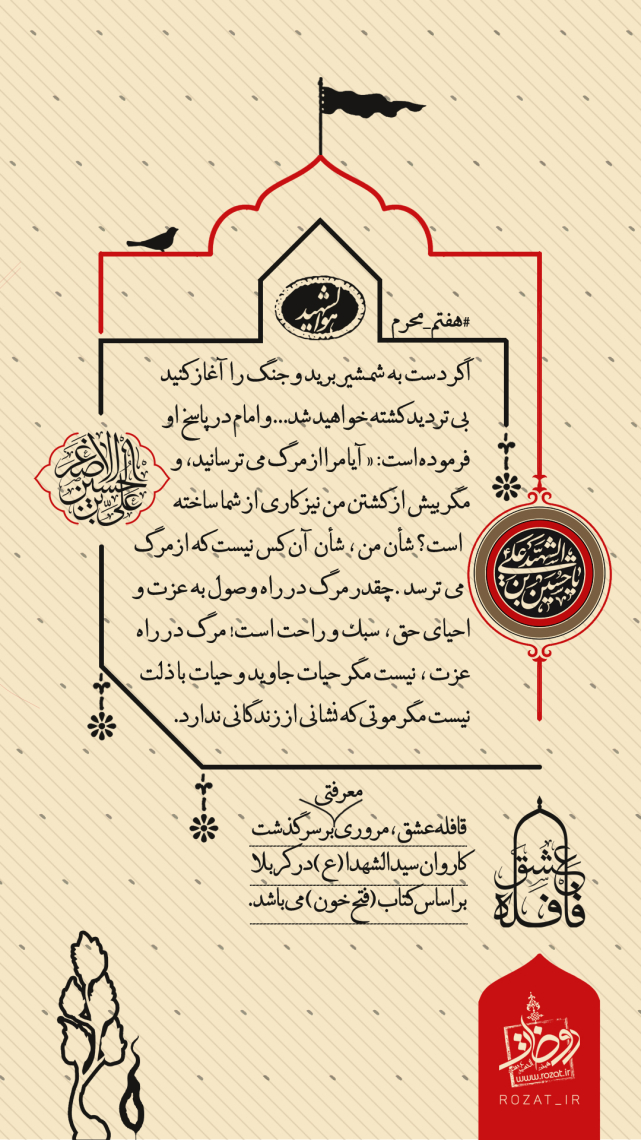 هوالشهید
#هفتم_محرم
اگر دست به شمشیر برید و جنگ را آغاز کنید
بی تردید کشته خواهید شد...و امام در پاسخ او
فرموده است: « آیا مرا از مرگ می ترسانید، و
مگر بیش از کشتن من نیز کاری از شما ساخته
است؟ شأن من ، شأن آن کس نیست که از مرگ
می ترسد .چقدر مرگ در راه وصول به عزت و
احیای حق ، سبك و راحت است! مرگ در راه
عزت ، نیست مگر حیات جاوید و حیات با ذلت
نیست مگر موتی که نشانی از زندگانی ندارد.
علی بن الحسین الاصغر
یا حسین بن علی الشهید
معرفتی
قافله عشق ، مروری بر سرگذشت
کاروان سیدالشهدا (ع) در کربلا
بر اساس کتاب (فتح خون) می باشد.
قافله عشق
روضات
www.rozat.ir
ROZAT_IR